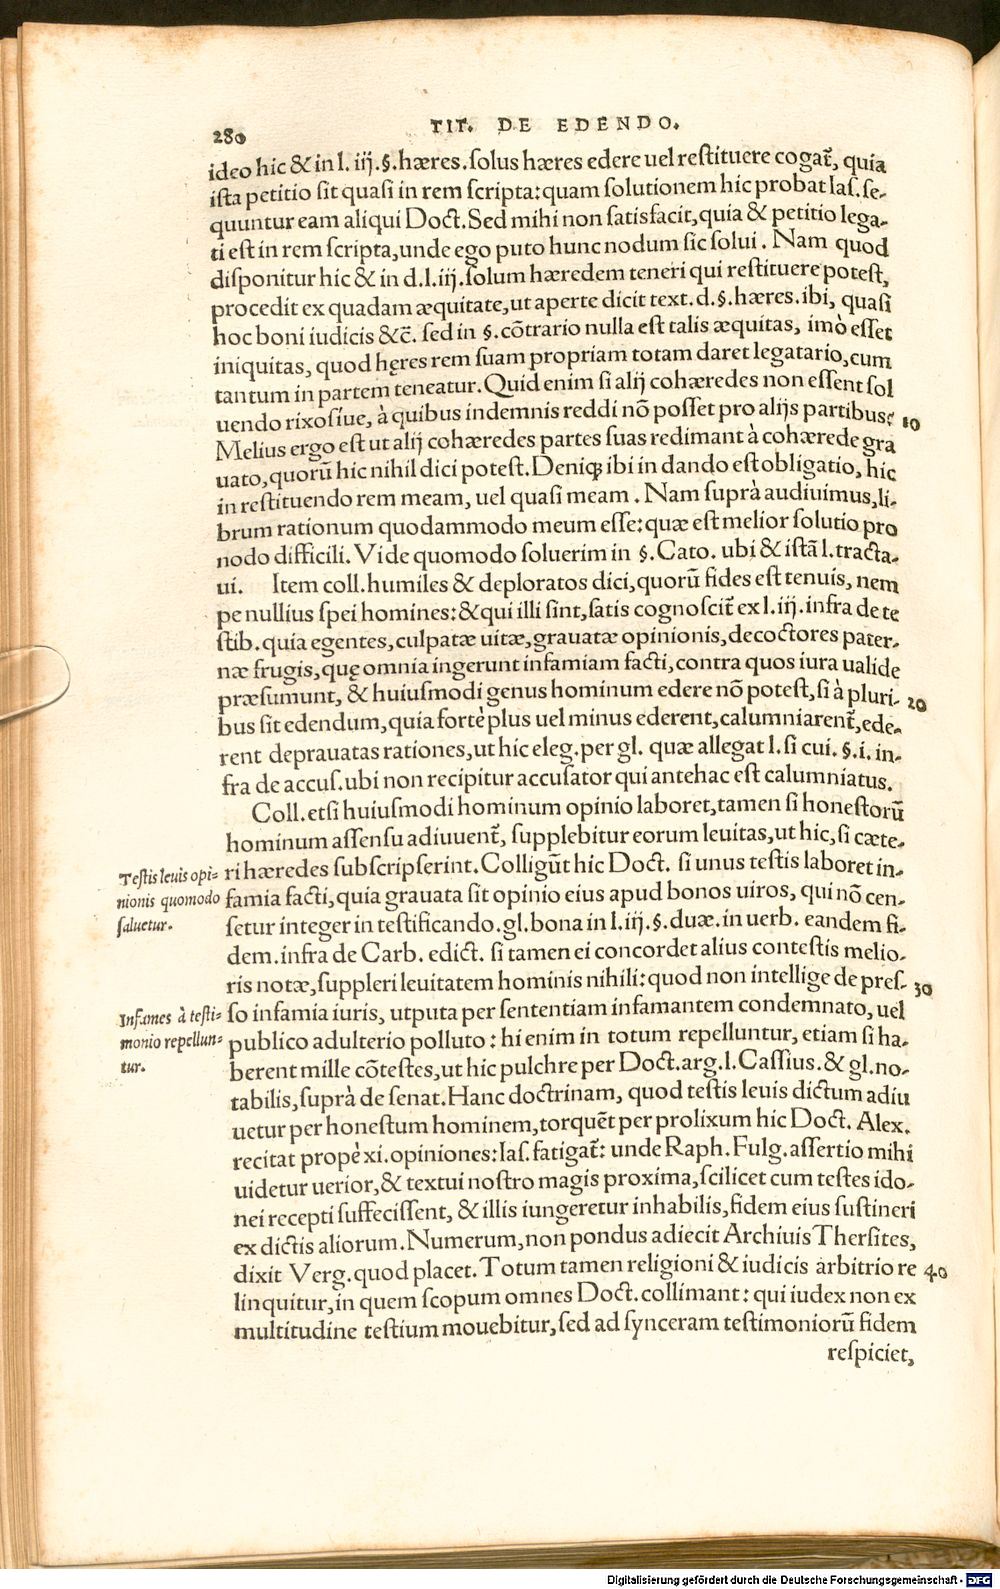 280
TIT. DE EDENDO.
ideo hic & in l. iij. §. hæres. solus hæres edere uel restituere cogat̃, quia
ista petitio sit quasi in rem scripta: quam solutionem hic probat Ias. se-
quuntur eam aliqui Doct. Sed mihi non satisfacit, quia & petitio lega-
ti est in rem scripta, unde ego puto hunc nodum sic solui. Nam quod
disponitur hic & in d. l. iij. solum hæredem teneri qui restituere potest,
procedit ex quadam æquitate, ut aperte dicit text. d. §. hæres. ibi, quasi
hoc boni iudicis &c̃. sed in §. cõtrario nulla est talis æquitas, imò esset
iniquitas, quod hęres rem suam propriam totam daret legatario, cum
tantum in partem teneatur. Quid enim si alij cohæredes non essent sol
uendo rixosiue, à quibus indemnis reddi nõ posset pro alijs partibus?
10
Melius ergo est ut alij cohæredes partes suas redimant à cohærede gra
uato, quorũ hic nihil dici potest. Deniqꝫ ibi in dando est obligatio, hic
in restituendo rem meam, uel quasi meam. Nam suprà audiuimus, li-
brum rationum quodammodo meum esse: quæ est melior solutio pro
nodo difficili. Vide quomodo soluerim in §. Cato. ubi & istã l. tracta-
ui. Item coll. humiles & deploratos dici, quorũ fides est tenuis, nem
pe nullius spei homines: & qui illi sint, satis cognoscit̃ ex l. iij. infra de te
stib. quia egentes, culpatæ uitæ, grauatæ opinionis, decoctores pater-
næ frugis, quę omnia ingerunt infamiam facti, contra quos iura ualide
præsumunt, & huiusmodi genus hominum edere nõ potest, si à pluri-
20
bus sit edendum, quia fortè plus uel minus ederent, calumniarent̃, ede-
rent deprauatas rationes, ut hic eleg. per gl. quæ allegat l. si cui. §. i. in-
fra de accus. ubi non recipitur accusator qui antehac est calumniatus.
Coll. etsi huiusmodi hominum opinio laboret, tamen si honestorũ
hominum assensu adiuuent̃, supplebitur eorum leuitas, ut hic, si cæte-
ri hæredes subscripserint. Colligũt hic Doct. si unus testis laboret in-
Testis leuis opi-
nionis quomodo
saluetur.
famia facti, quia grauata sit opinio eius apud bonos uiros, qui nõ cen-
setur integer in testificando. gl. bona in l. iij. §. duæ. in uerb. eandem fi-
dem. infra de Carb. edict. si tamen ei concordet alius contestis melio-
ris notæ, suppleri leuitatem hominis nihili: quod non intellige de pres-
30
so infamia iuris, utputa per sententiam infamantem condemnato, uel
Infames à testi-
monio repellun-
tur.
publico adulterio polluto: hi enim in totum repelluntur, etiam si ha-
berent mille cõtestes, ut hic pulchre per Doct. arg. l. Cassius. & gl. no-
tabilis, suprà de senat. Hanc doctrinam, quod testis leuis dictum adiu
uetur per honestum hominem, torquẽt per prolixum hic Doct. Alex.
recitat propè xi. opiniones: Ias. fatigat̃: unde Raph. Fulg. assertio mihi
uidetur uerior, & textui nostro magis proxima, scilicet cum testes ido-
nei recepti suffecissent, & illis iungeretur inhabilis, fidem eius sustineri
ex dictis aliorum. Numerum, non pondus adiecit Archiuis Thersites,
dixit Verg. quod placet. Totum tamen religioni & iudicis arbitrio re
40
linquitur, in quem scopum omnes Doct. collimant: qui iudex non ex
multitudine testium mouebitur, sed ad synceram testimoniorũ fidem
respiciet,
Digitalisierung gefördert durch die Deutsche Forschungsgemeinschaft - DFG